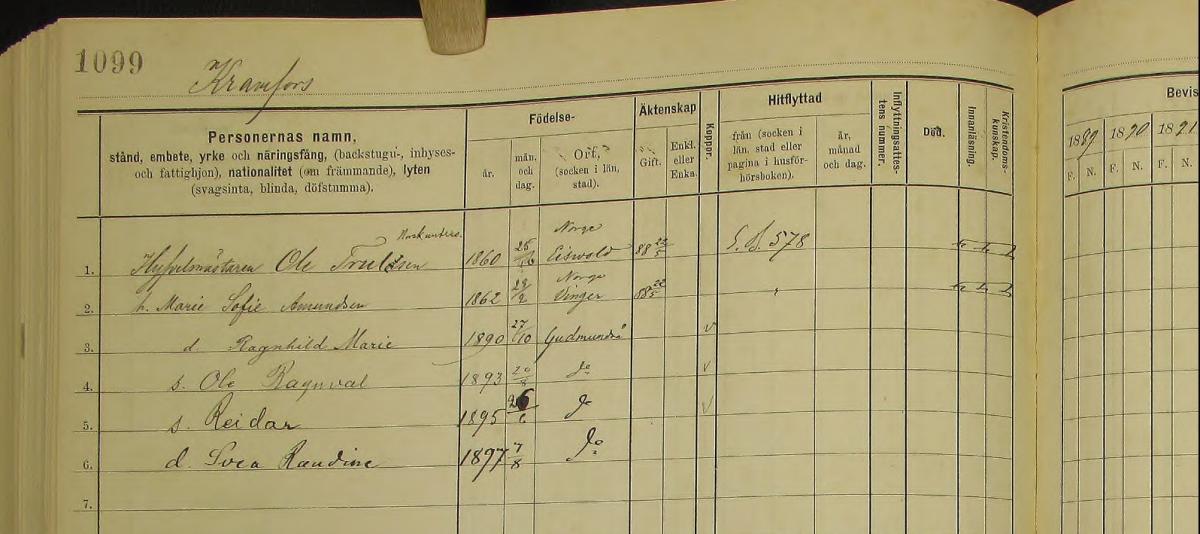 1099
Kramfors
Personernas namn,
stånd, embete, yrke och näringsfång, (backstugu-, inhyses-
och fattighjon), nationalitet (om främmande), lyten
(svagsinta, blinda, döfstumma).
Födelse-
år.
mån. och dag.
Ort, (socken i län, stad).
Äktenskap
Gift.
Enkl. eller Enka.
Koppor.
Hitflyttad
från (socken i län, stad eller pagina i husförhörsboken).
år, månad och dag.
Inflyttningsattestens nummer.
Död.
Innanläsning.
Kristendomskunskap.
Bevis
1889 1890 1891
F. N. F. N. F. N.
Norsk unders. Norge
1. Hyfvelmästaren Ole Trulsen 1860 Eidsvold 88 22/5 G. B. 578
Norge
2. h. Marie Sofie Amundsen 1862 28/2 Vinger 88 22/5 "
3. d. Ragnhild Marie 1890 27/10 Gudmundrå
4. s. Ole Ragnval 1893 20/8 do
5. s. Reidar 1895 26/6 do
6. d. Svea Randine 1897 7/8 do
7.